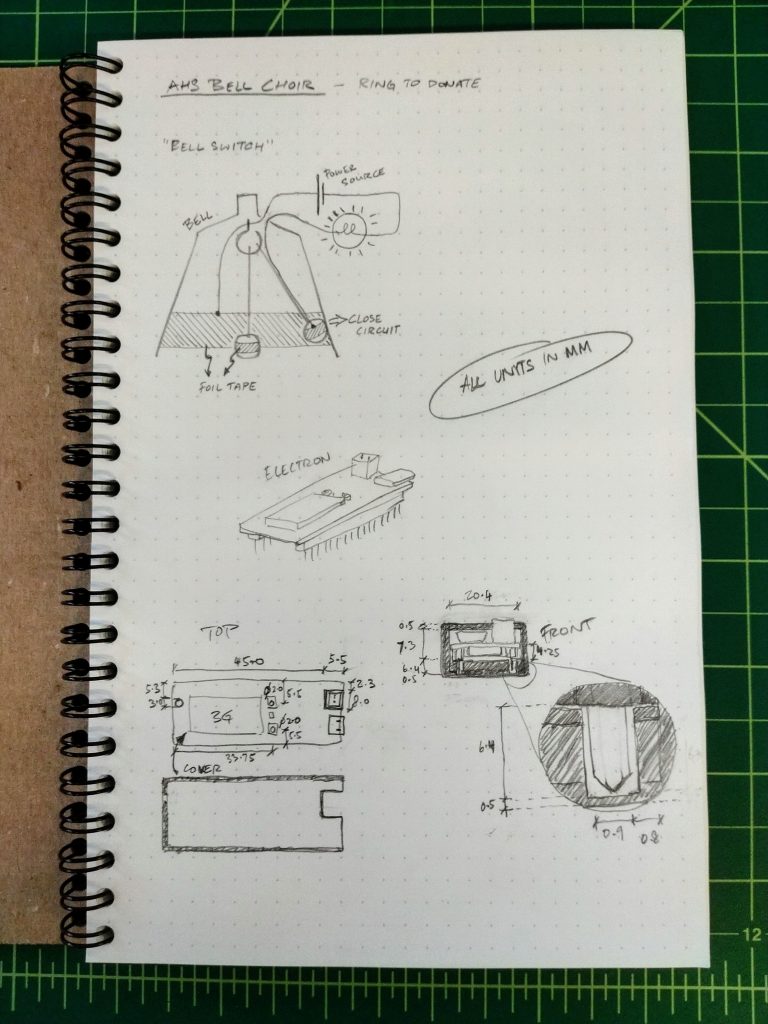 AHS BELL CHOIR - RING TO DONATE
"BELL SWITCH"
POWER
SOURCE
BELL
⇒ CLOSE
CIRCUIT
FOIL TAPE
ALL UNITS IN MM
ELECTRON
TOP
45.0
5.5
5.3
3.0
3G
ø2.0
5.5
2.3
8.0
ø2.0
5.5
33.75
COVER
20.4
FRONT
0.5
7.3
6.4
0.5
4.25
6.4
0.5
0.9
0.8
12